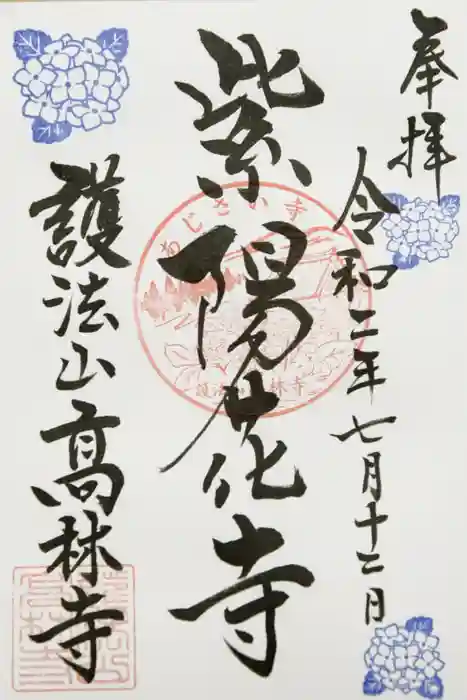 奉拝
令和二年七月十二日
紫陽花寺
あじさい寺
護法山高林寺